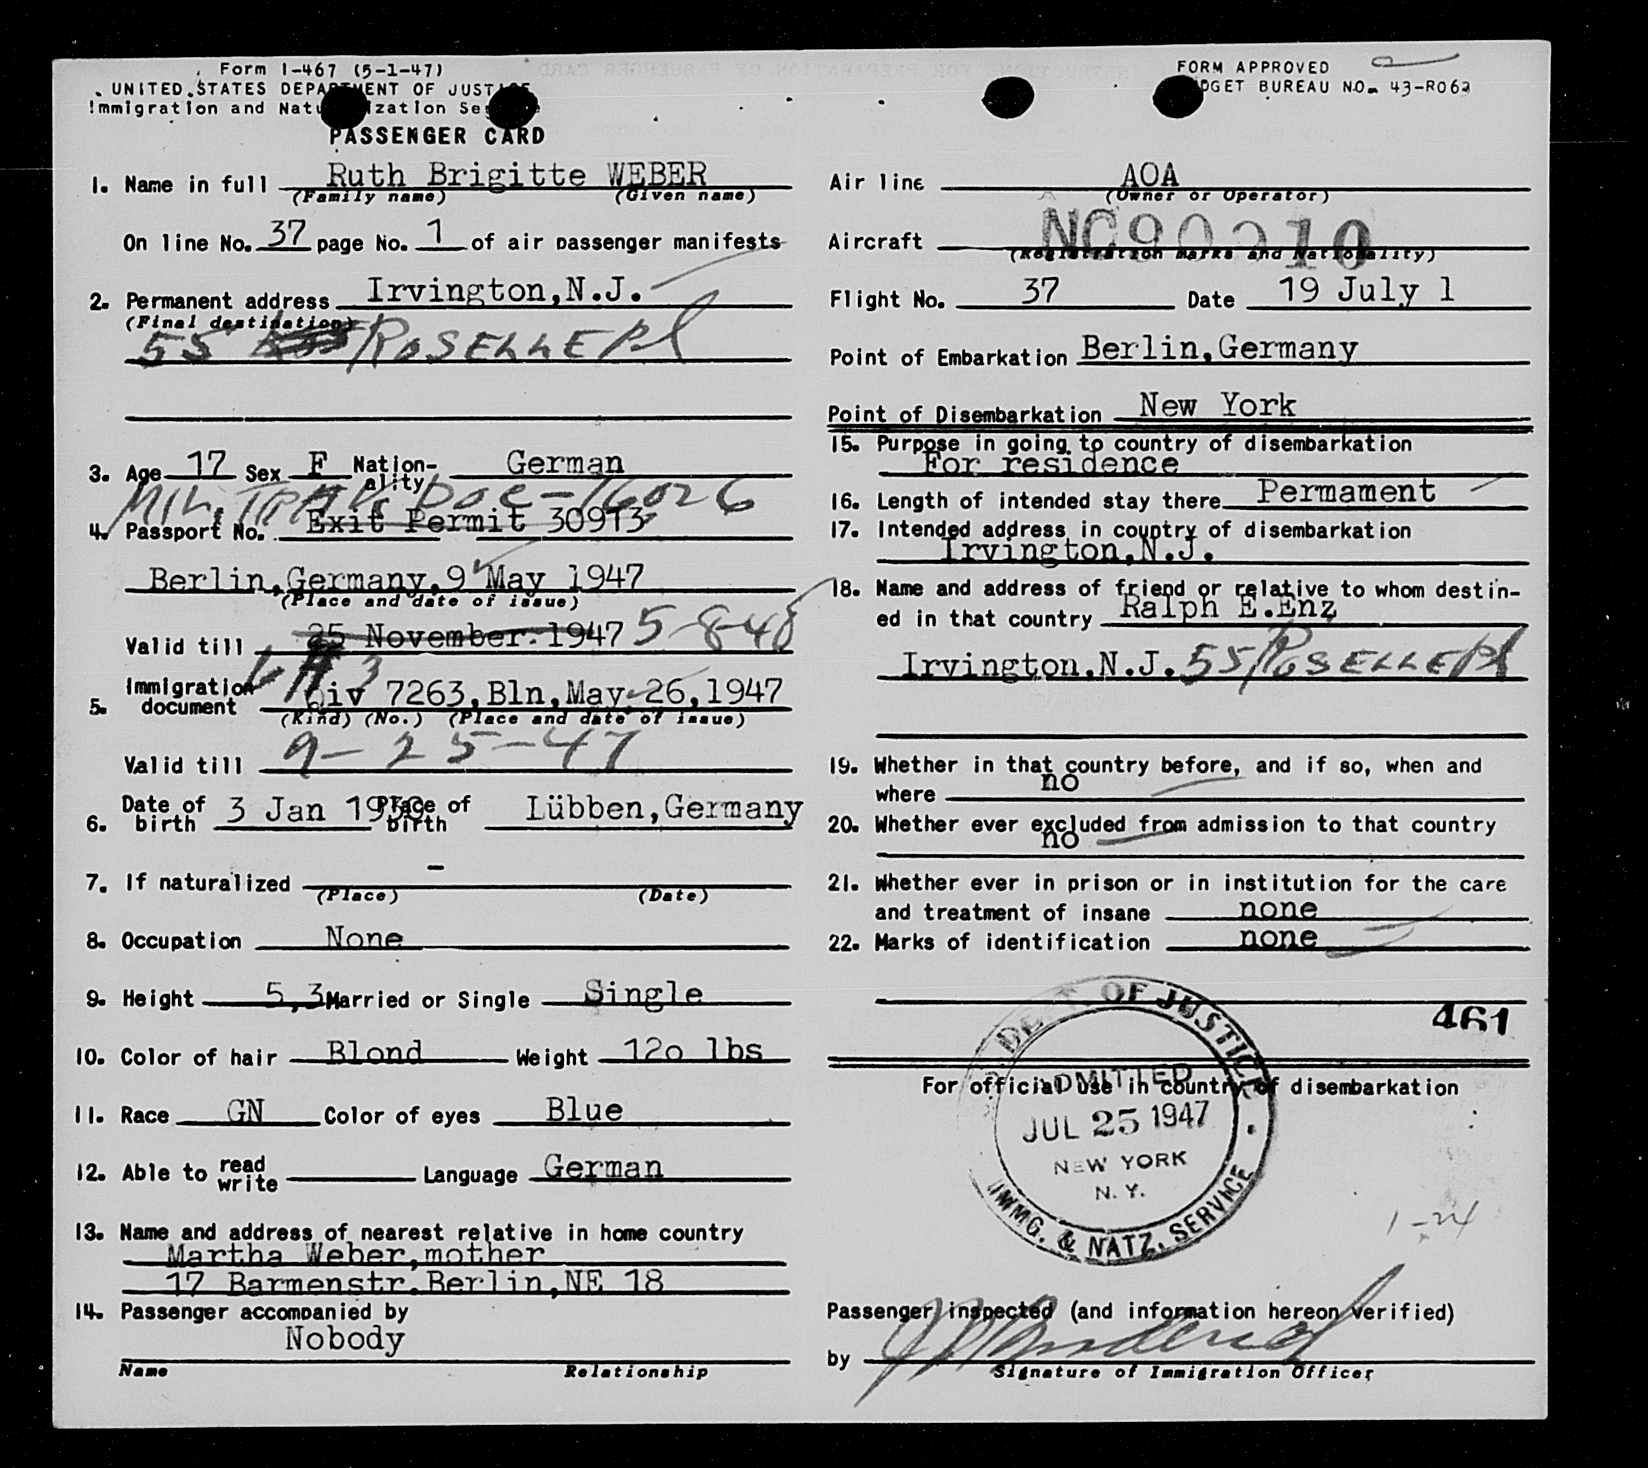 Form I-467 (5-1-47)
UNITED STATES DEPARTMENT OF JUSTICE
Immigration and Naturalization Service
PASSENGER CARD
1. Name in full Ruth Brigitte WEBER
(Family name) (Given name)
On line No. 37 page No. 1 of air passenger manifests
2. Permanent address Irvington,N.J.
(Final destination)
55 ROSELLE Pl
3. Age 17 Sex F Nation-ality German
MIL. Doc-16026
4. Passport No. Exit Permit 30913
Berlin,Germany,9 May 1947
(Place and date of issue)
Valid till 25 November 1947 5-8-48
5. Immigration document Qiv 7263,Bln,May 26,1947
(Kind) (No.) (Place and date of issue)
Valid till 9-25-47
6. Date of birth 3 Jan 1930 Place of birth Lübben,Germany
7. If naturalized -
(Place) (Date)
8. Occupation None
9. Height 5,3 Married or Single Single
10. Color of hair Blond Weight 12o lbs
11. Race GN Color of eyes Blue
12. Able to read write Language German
13. Name and address of nearest relative in home country
Martha Weber,mother
17 Barmenstr.Berlin,NE 18
14. Passenger accompanied by
Nobody
Name Relationship
FORM APPROVED
BUDGET BUREAU NO. 43-R063
Air line AOA
(Owner or Operator)
Aircraft
(Registration marks and Nationality)
Flight No. 37 Date 19 July 1
Point of Embarkation Berlin,Germany
Point of Disembarkation New York
15. Purpose in going to country of disembarkation
For residence
16. Length of intended stay there Permament
17. Intended address in country of disembarkation
Irvington,N.J.
18. Name and address of friend or relative to whom destin-
ed in that country Ralph E.Enz
Irvington,N.J. 55 ROSELLE Pl
19. Whether in that country before, and if so, when and
where no
20. Whether ever excluded from admission to that country
no
21. Whether ever in prison or in institution for the care
and treatment of insane none
22. Marks of identification none
461
For official use in country of disembarkation
DEPT. OF JUSTICE
ADMITTED
JUL 25 1947
NEW YORK
N. Y.
IMMG. & NATZ. SERVICE
1-24
Passenger inspected (and information hereon verified)
by
Signature of Immigration Officer